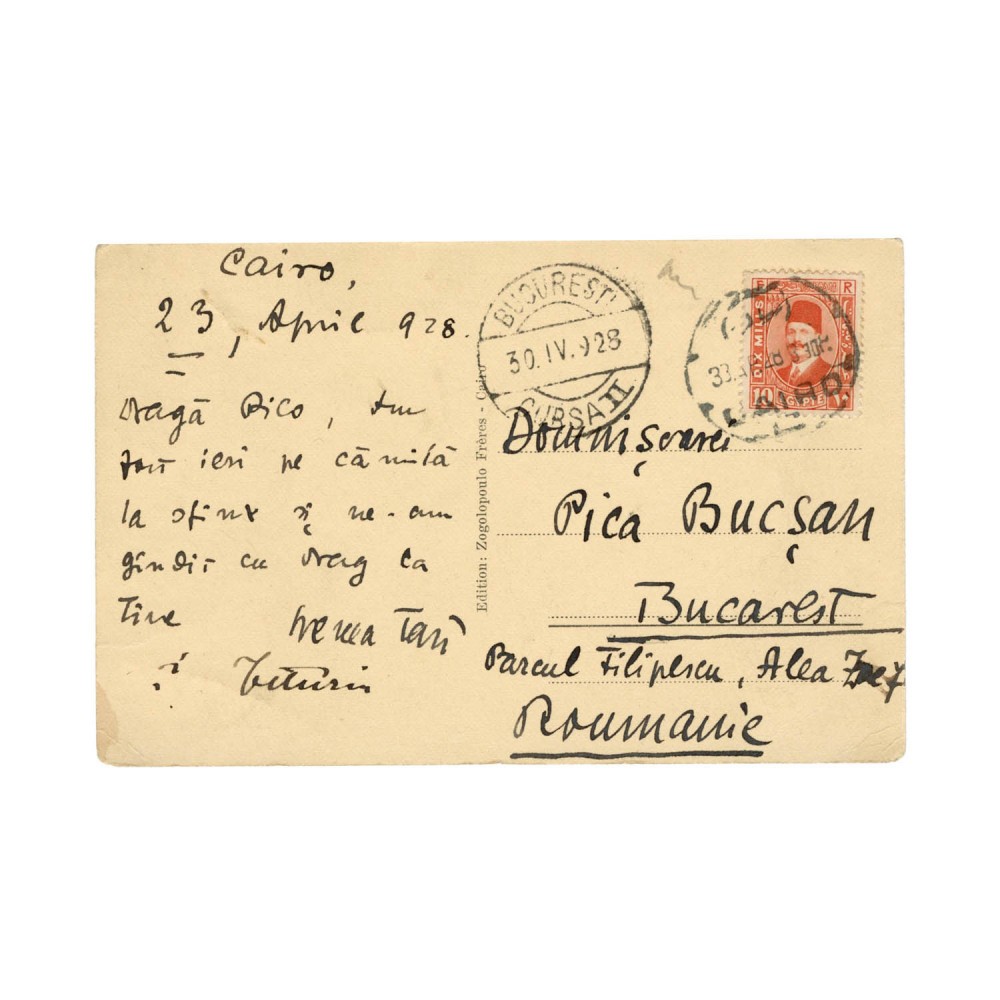 Cairo,
23, April 928.
Dragă Pico, Am
fost ieri pe cămilă
la sfinx și ne-am
gîndit cu drag la
Tine
și
Domnișoarei
Pica Bucșan
Bucarest
Parcul Filipescu, Alea Zoe 7
Roumanie
Edition: Zogolopoulo Frères - Cairo
BUCUREȘTI
30.IV.928
CURSA II
DIX MILLS
10 EGYPTE ١٠
CAIRO